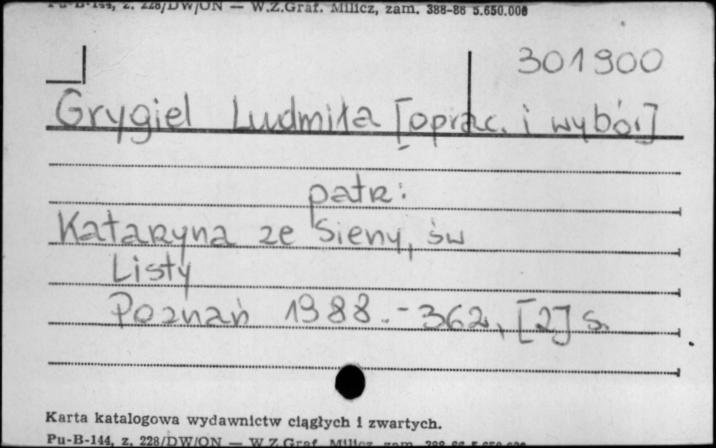 Pu-B-144, z. 228/DW/ON — W.Z.Graf. Milicz, zam. 388-86 5.650.000
301900
Grygiel Ludmiła [oprac. i wybór]
patr:
Kataryna ze Sieny, św
Listy
Poznań 1988. - 362, [2] s.
Karta katalogowa wydawnictw ciągłych i zwartych.
Pu-B-144, z. 228/DW/ON — W.Z.Graf. Milicz, zam. 388-86 5.650.000